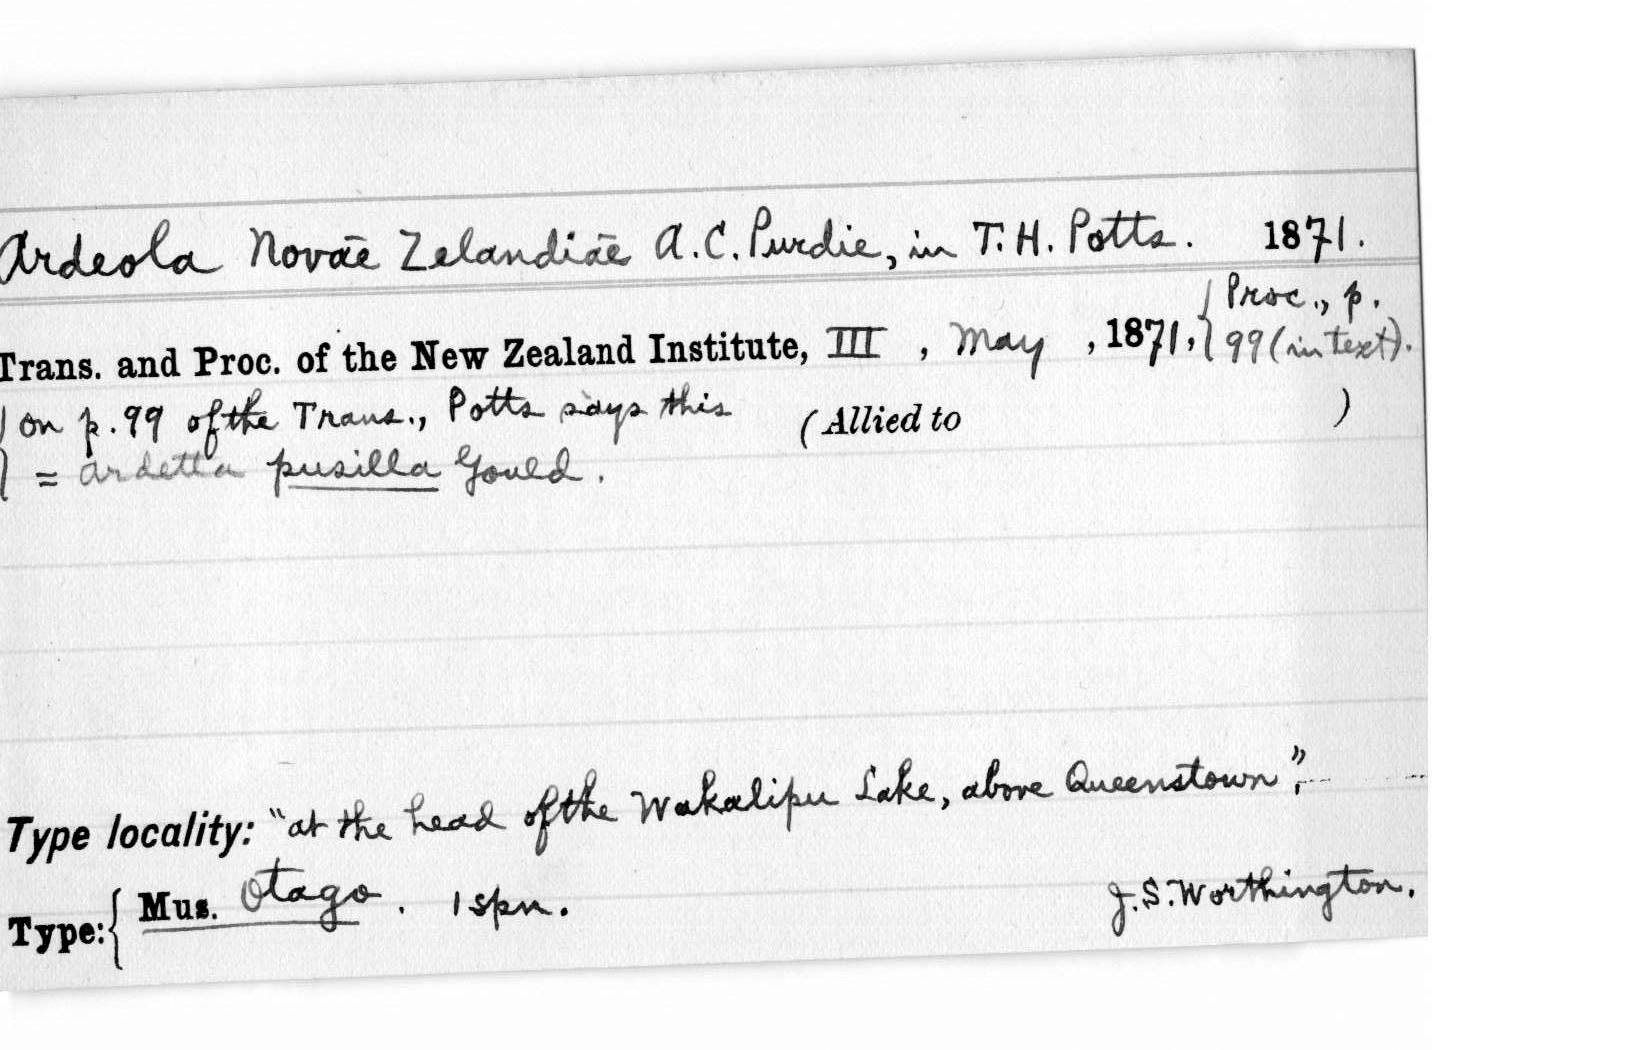 Ardeola Novae Zelandiae A.C. Purdie, in T.H. Potts. 1871.
Trans. and Proc. of the New Zealand Institute, III, May, 1871, { Proc., p. 99 (in text).
{ on p. 99 of the Trans., Potts says this (Allied to )
= Ardetta pusilla Gould.
Type locality: "at the head of the Wakalipu Lake, above Queenstown",
Type: { Mus. Otago. 1 spn. J.S. Worthington.